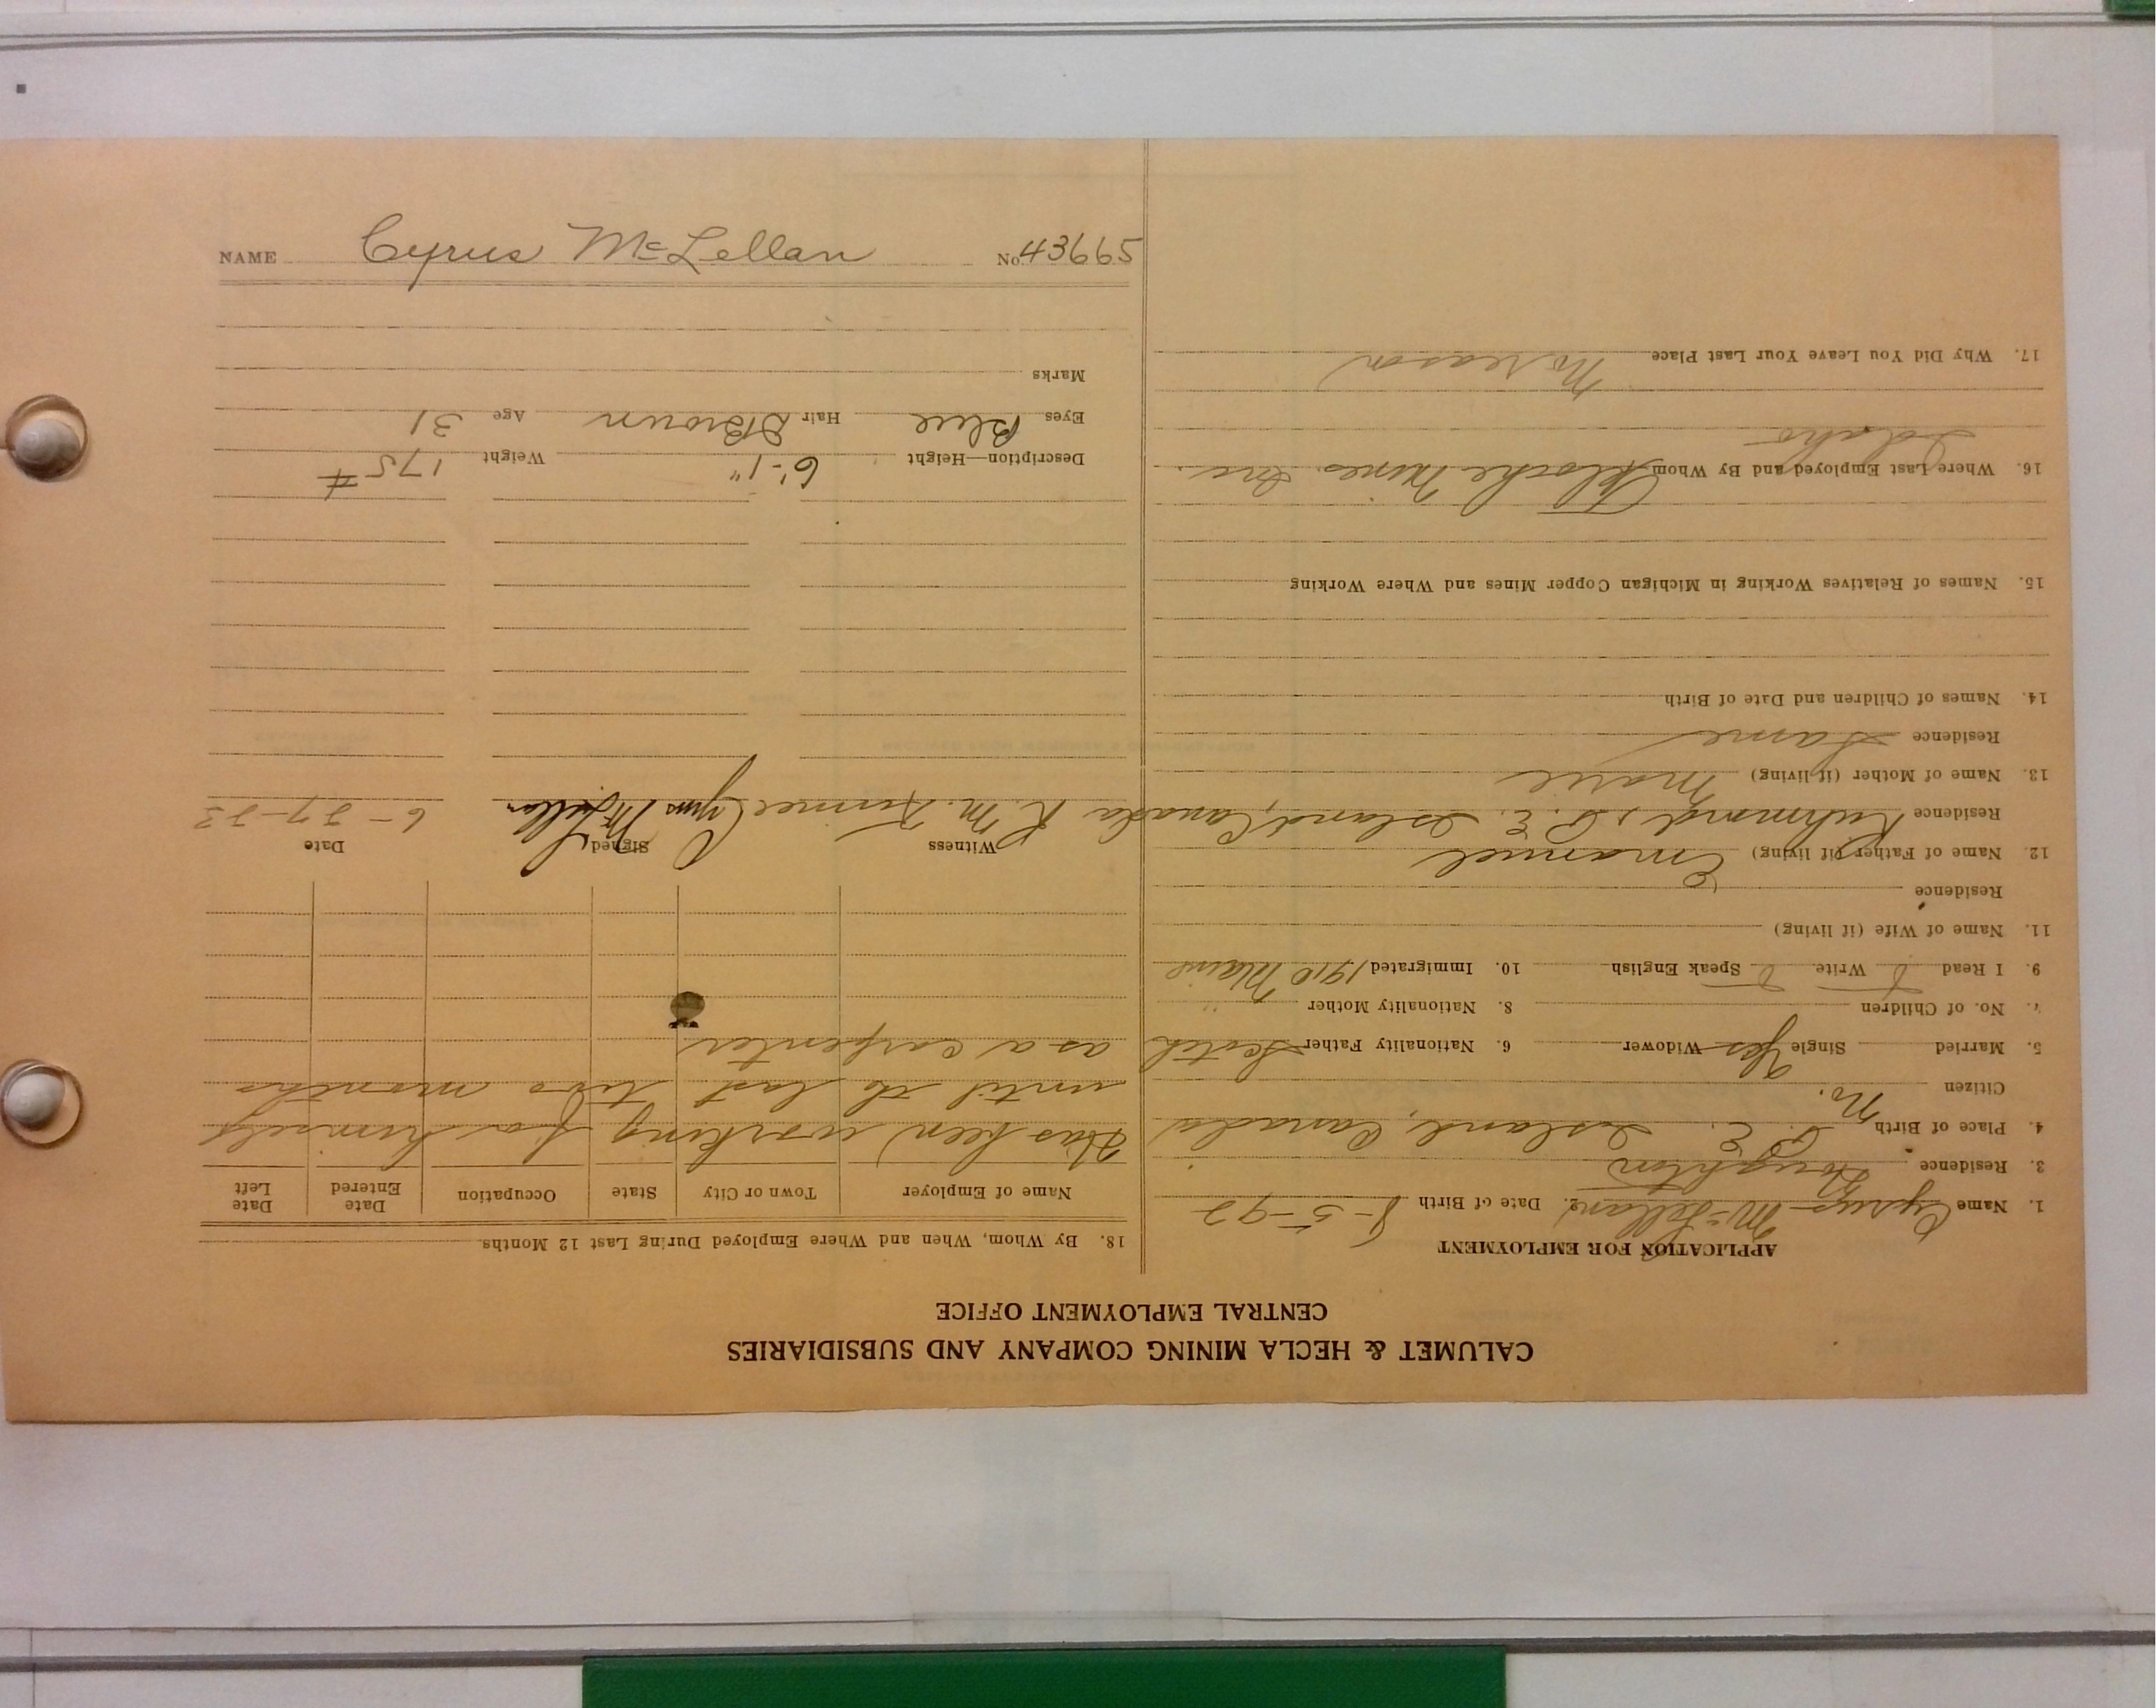 CALUMET & HECLA MINING COMPANY AND SUBSIDIARIES
CENTRAL EMPLOYMENT OFFICE
APPLICATION FOR EMPLOYMENT
1. Name Cyrus McLellan 2. Date of Birth 8-5-92
3. Residence Houghton
4. Place of Birth P. E. Island, Canada
Citizen No.
5. Married Single Yes Widower 6. Nationality Father Scotch
7. No. of Children 8. Nationality Mother "
9. I Read Write Speak English 10. Immigrated 1910 Maine
11. Name of Wife (if living)
Residence
12. Name of Father (if living) Emanuel
Residence Richmond, P. E. Island, Canada
13. Name of Mother (if living) Marie
Residence Same
14. Names of Children and Date of Birth
15. Names of Relatives Working in Michigan Copper Mines and Where Working
16. Where Last Employed and By Whom Mines Inc.
Idaho
17. Why Did You Leave Your Last Place No reason
18. By Whom, When and Where Employed During Last 12 Months
Name of Employer Town or City State Occupation Date Entered Date Left
Has been working for himself
until the last two months
as a carpenter
Witness Signed Date
R. M. Cyrus McLellan 6-27-23
Description—Height 6'-1" Weight 175 #
Eyes Blue Hair Brown Age 31
Marks
NAME Cyrus McLellan No 43665